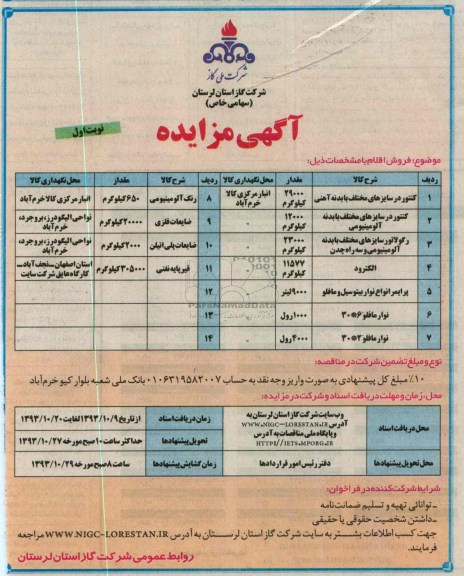 شرکت ملی گاز
شرکت گاز استان لرستان
(سهامی خاص)
آگهی مزایده
نوبت اول
موضوع: فروش اقلام با مشخصات ذیل:
ردیف شرح کالا مقدار محل نگهداری کالا ردیف شرح کالا مقدار محل نگهداری کالا
1 کنتور در سایزهای مختلف با بدنه آهنی ۲۹۰۰۰ کیلوگرم انبار مرکزی کالا خرم آباد ۸ رنگ آلومینیومی ۶۵۰ کیلوگرم انبار مرکزی کالا خرم آباد
2 کنتور در سایزهای مختلف با بدنه آلومینیومی ۱۲۰۰۰ کیلوگرم ۹ ضایعات فلزی ۲۰۰۰۰ کیلوگرم نواحی الیگودرز، بروجرد، خرم آباد
3 رگولاتور سایزهای مختلف با بدنه آلومینیومی و سه راه چدن ۲۳۰۰۰ کیلوگرم ۱۰ ضایعات پلی اتیلن ۲۰۰۰ کیلوگرم نواحی الیگودرز، بروجرد، خرم آباد
4 الکترود ۱۱۵۷۷ کیلوگرم ۱۱ قیر پایه نفتی ۳۰۵۰۰۰ کیلوگرم استان اصفهان_نجف آباد_ کارگاه عایق شرکت سایت
5 پرایمر انواع نوار بیتوسیل و مافلو ۹۰۰۰ لیتر ۱۲
6 نوار مافلو ۶*۳۰ ۱۰۰۰ رول ۱۳
7 نوار مافلو ۲*۳۰ ۴۰۰۰ رول ۱۴
ParsNamadData
نوع و مبلغ تضمین شرکت در مناقصه:
۱۰٪ مبلغ کل پیشنهادی به صورت واریز وجه نقد به حساب ۰۱۰۶۳۱۹۵۸۲۰۰۷ بانک ملی شعبه بلوار کیو خرم آباد
محل، زمان و مهلت دریافت اسناد و شرکت در مزایده:
محل دریافت اسناد وب سایت شرکت گاز استان لرستان به آدرس WWW.NIGC-LORESTAN.IR و پایگاه ملی مناقصات به آدرس HTTP://IETS.MPORG.IR زمان دریافت اسناد از تاریخ ۱۳۹۳/۱۰/۹ لغایت ۱۳۹۳/۱۰/۲۰
تحویل پیشنهادها حداکثر ساعت ۱۰ صبح مورخه ۱۳۹۳/۱۰/۲۷
محل تحویل پیشنهادها دفتر رئیس امور قراردادها زمان گشایش پیشنهادها ساعت ۸ صبح مورخه ۱۳۹۳/۱۰/۲۹
شرایط شرکت کننده در فراخوان:
_ توانائی تهیه و تسلیم ضمانت نامه
_ داشتن شخصیت حقوقی یا حقیقی
جهت کسب اطلاعات بیشتر به سایت شرکت گاز استان لرستان به آدرس WWW.NIGC-LORESTAN.IR مراجعه فرمایند.
روابط عمومی شرکت گاز استان لرستان